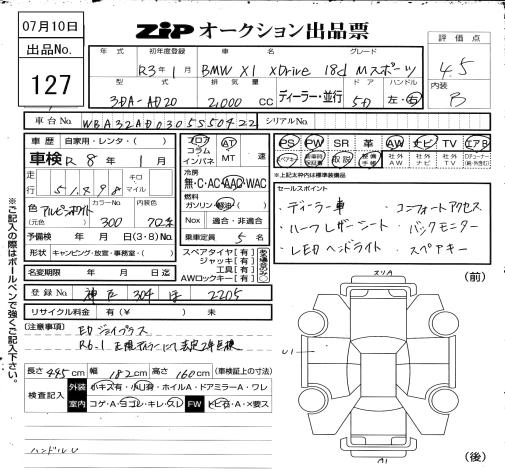 07月10日
ZIP オークション出品票
出品No.
127
評価点
4.5
内装
B
年式 初年度登録 車名 グレード
R3年1月 BMW X1 xDrive 18d Mスポーツ
型式 排気量 ドア ハンドル
3DA-AD20 2,000 cc ディーラー・並行 5D 左・右
車台No. WBA32AD0305S50422 シリアルNo.
車歴 自家用・レンタ・( )
車検 R 8年 1月
走行 51,898 キロ マイル
色 アルピンホワイト カラーNo. 内装色
(元色) 300
予備検 年 月 日(3・8)No.
形状 キャンピング・放宣・事務室・( )
名変期限 年 月 日迄
フロア コラム インパネ AT MT 速
冷房
無・C・AC・AAC・WAC
燃料
ガソリン・軽油・( )
Nox 適合・非適合
乗車定員 5 名
スペアタイヤ[有]
ジャッキ[有]
工具[有]
AWロックキー[有]
PS PW SR 革 AW ナビ TV エアB
スペアキー 新車時保証書 取説 整備手帳 社外AW 社外ナビ 社外TV
※上記太枠内は標準装備品
セールスポイント
・ディーラー車 ・コンフォートアクセス
・ハーフレザーシート ・バックモニター
・LEDヘッドライト ・スペアキー
登録No. 神戸 304 ほ 2205
リサイクル料金 有(¥ ) 無
(注意事項) EDジョイプラス
R6.1 正規ディーラーにて法定2年点検
長さ 445cm 幅 182cm 高さ 160cm (車検証上の寸法)
検査記入 外装 小キズ有・小凹有・ホイルA・ドアミラーA・ワレ
室内 コゲ・A・ヨゴレ・キレ・スレ FW トビ石・A・X要ス
ハンドルU
※ご記入の際はボールペンで強くご記入下さい。
(前)
U1
A1
(後)